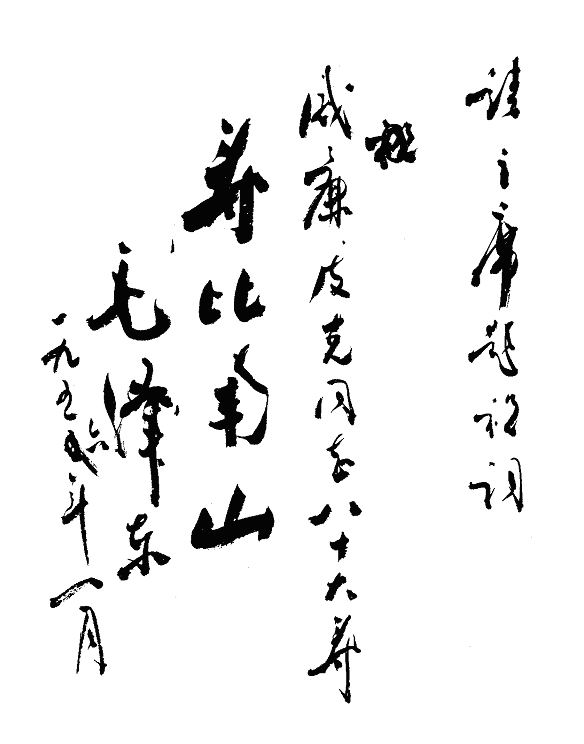 请主席题祝词
祝
威廉·皮克同志八十大寿
寿比南山
毛泽东
一九五六年一月